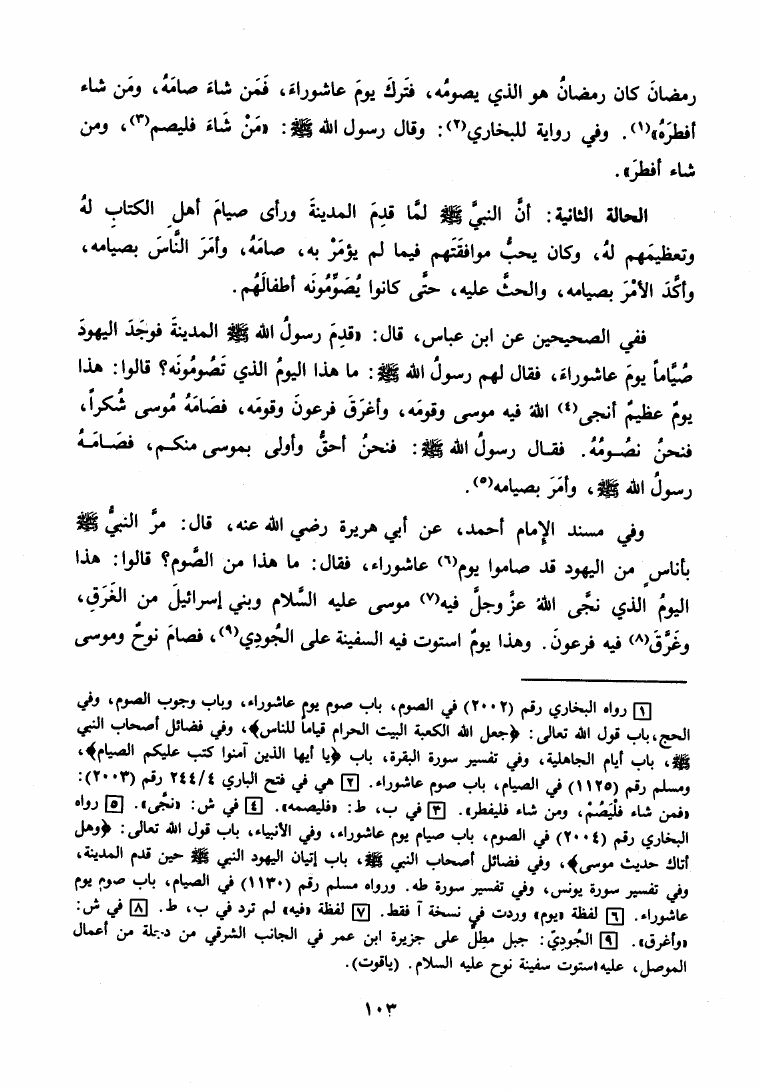 رمضانَ كان رمضانُ هو الذي يصومُه، فتَركَ يومَ عاشوراءَ، فَمَن شاءَ صامَهُ، ومَن شاء
أفطرَهُ»(١). وفي رواية للبخاري(٢): وقال رسول الله ﷺ: «مَنْ شَاءَ فليصم(٣)، ومن
شاء أفطرَ».
الحالة الثانية: أنَّ النبيَّ ﷺ لمَّا قدِمَ المدينةَ ورأى صيامَ أهلِ الكتابِ لهُ
وتعظيمَهم لهُ، وكان يحبُّ موافقَتَهم فيما لم يؤمَرْ به، صامَهُ، وأمَرَ النَّاسَ بصيامه،
وأكَّدَ الأمْرَ بصيامه، والحثَّ عليه، حتَّى كانوا يُصَوِّمُونَه أطفالَهُم.
ففي الصحيحين عن ابن عباس، قال: «قدِمَ رسولُ الله ﷺ المدينةَ فوجَدَ اليهودَ
صُيَّاماً يومَ عاشوراءَ، فقال لهم رسولُ الله ﷺ: ما هذا اليومُ الذي تَصُومُونَه؟ قالوا: هذا
يومٌ عظيمٌ أنجى(٤) اللهُ فيه موسى وقومَه، وأغرَقَ فرعونَ وقومَه، فصَامَهُ مُوسى شُكراً،
فنحنُ نصُومُهُ. فقال رسولُ الله ﷺ: فنحنُ أحقُّ وأولى بموسى منكم، فصَامَهُ
رسولُ الله ﷺ، وأمَرَ بصيامه(٥).
وفي مسند الإمام أحمد، عن أبي هريرة رضي الله عنه، قال: مرَّ النبيُّ ﷺ
بأناسٍ من اليهود قد صاموا يوم(٦) عاشوراء، فقال: ما هذا من الصَّوم؟ قالوا: هذا
اليومُ الذي نجَّى اللهُ عزَّ وجلَّ فيه(٧) موسى عليه السَّلام وبني إسرائيلَ من الغَرَقِ،
وغَرَّقَ(٨) فيه فرعونَ. وهذا يومٌ استوت فيه السفينة على الجُودِي(٩)، فصامَ نوحٌ وموسى
[١] رواه البخاري رقم (٢٠٠٢) في الصوم، باب صوم يوم عاشوراء، وباب وجوب الصوم، وفي
الحج، باب قول الله تعالى: ﴿جعل الله الكعبة البيت الحرام قياماً للناس﴾، وفي فضائل أصحاب النبي
ﷺ، باب أيام الجاهلية، وفي تفسير سورة البقرة، باب ﴿يا أيها الذين آمنوا كتب عليكم الصيام﴾،
ومسلم رقم (١١٢٥) في الصيام، باب صوم عاشوراء. [٢] هي في فتح الباري ٢٤٤/٤ رقم (٢٠٠٣):
«فمن شاء فلْيَصُمْ، ومن شاء فليفطر». [٣] في ب، ط: «فليصمه». [٤] في ش: «نجَّى». [٥] رواه
البخاري رقم (٢٠٠٤) في الصوم، باب صيام يوم عاشوراء، وفي الأنبياء، باب قول الله تعالى: ﴿وهل
أتاك حديث موسى﴾، وفي فضائل أصحاب النبي ﷺ، باب إتيان اليهود النبي ﷺ حين قدم المدينة،
وفي تفسير سورة يونس، وفي تفسير سورة طه. ورواه مسلم رقم (١١٣٠) في الصيام، باب صوم يوم
عاشوراء. [٦] لفظة «يوم» وردت في نسخة آ فقط. [٧] لفظة «فيه» لم ترد في ب، ط. [٨] في ش:
«وأغرق». [٩] الجُودِيّ: جبل مطِلٌّ على جزيرة ابن عمر في الجانب الشرقي من دجلة من أعمال
الموصل، عليه استوت سفينة نوح عليه السلام. (ياقوت).
١٠٣